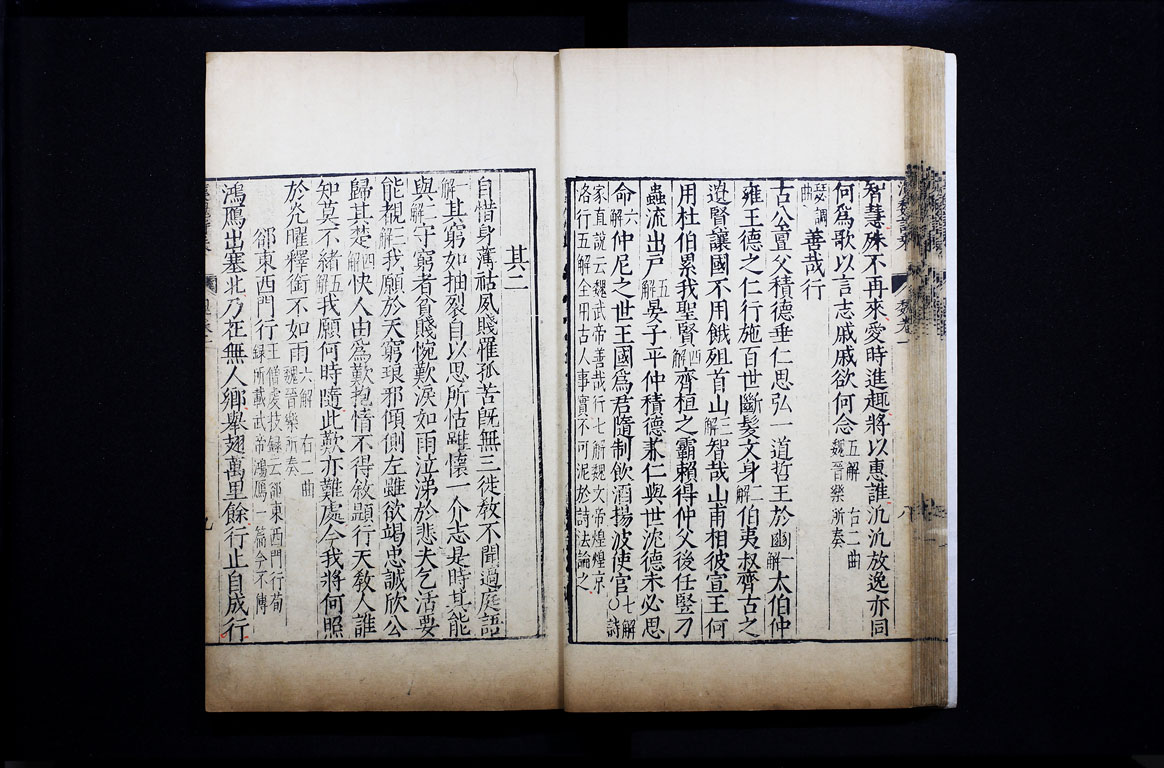 智慧殊不再來愛時進趣將以惠誰汎汎放逸亦同
何爲歌以言志戚戚欲何念五解 右二曲魏晉樂所奏
瑟調曲善哉行
古公亶父積德垂仁思弘一道哲王於豳一解太伯仲
雍王德之仁行施百世斷髮文身二解伯夷叔齊古之
遺賢讓國不用餓殂首山三解智哉山甫相彼宣王何
用杜伯累我聖賢四解齊桓之霸賴得仲父後任豎刁
蟲流出戸五解晏子平仲積德兼仁與世沈德未必思
命六解仲尼之世王國爲君隨制飲酒揚波使官七解○詩
家直説云魏武帝善哉行七解魏文帝煌煌京
洛行五解全用古人事實不可泥於詩法論之
其二
自惜身薄祜夙賤罹孤苦旣無三徙敎不聞過庭語
一解其窮如抽裂自以思所怙雖懷一介志是時其能
與二解守窮者貧賤惋歎淚如雨泣涕於悲夫乞活要
能覩三解我願於天窮琅邪傾側左雖欲竭忠誠欣公
歸其楚四解快人由爲歎抱情不得敘顯行天敎人誰
知莫不緒五解我願何時隨此歎亦難處今我將何照
於光曜釋銜不如雨六解 右二曲魏晉樂所奏
郤東西門行王僧虔技録云郤東西門行荀録所載武帝鴻鴈一篇今不傳
鴻鴈出塞北乃在無人鄉舉翅萬里餘行止自成行